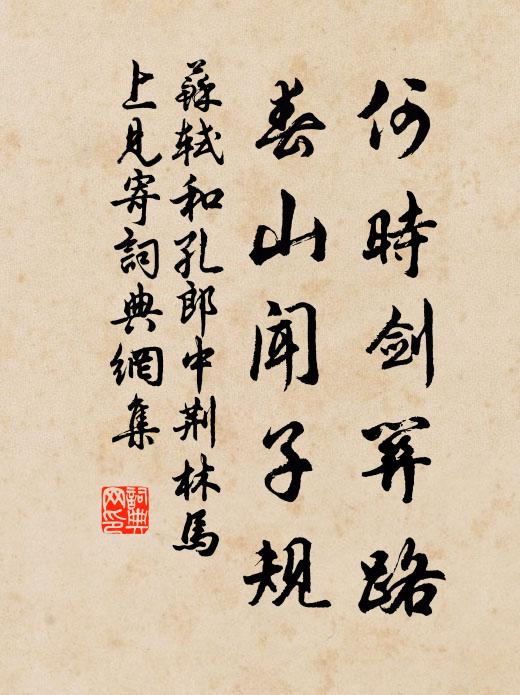 何時劍關路
春山聞子規
蘇軾和孔郎中荊林馬
上見寄詞典網集
詞典
网印